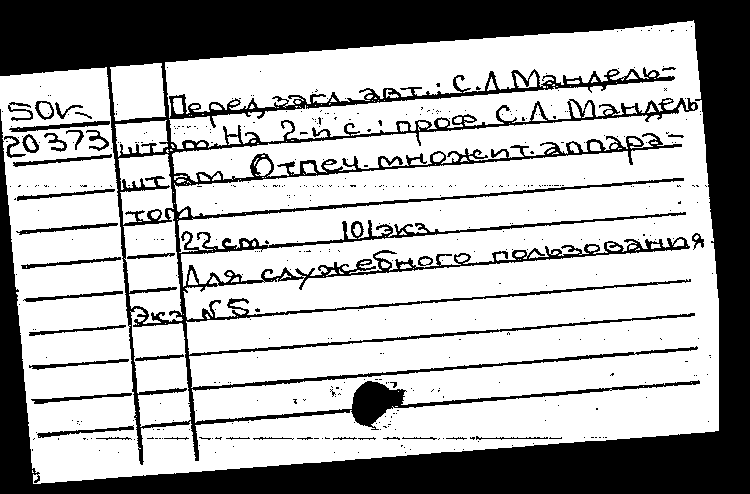 50к
20373
Перед загл. авт.: С.Л. Мандель-
штам. На 2-й с.: проф. С.Л. Мандель
штам. Отпеч. множит. аппара-
том.
22 см. 101 экз.
Для служебного пользования
Экз. № 5.